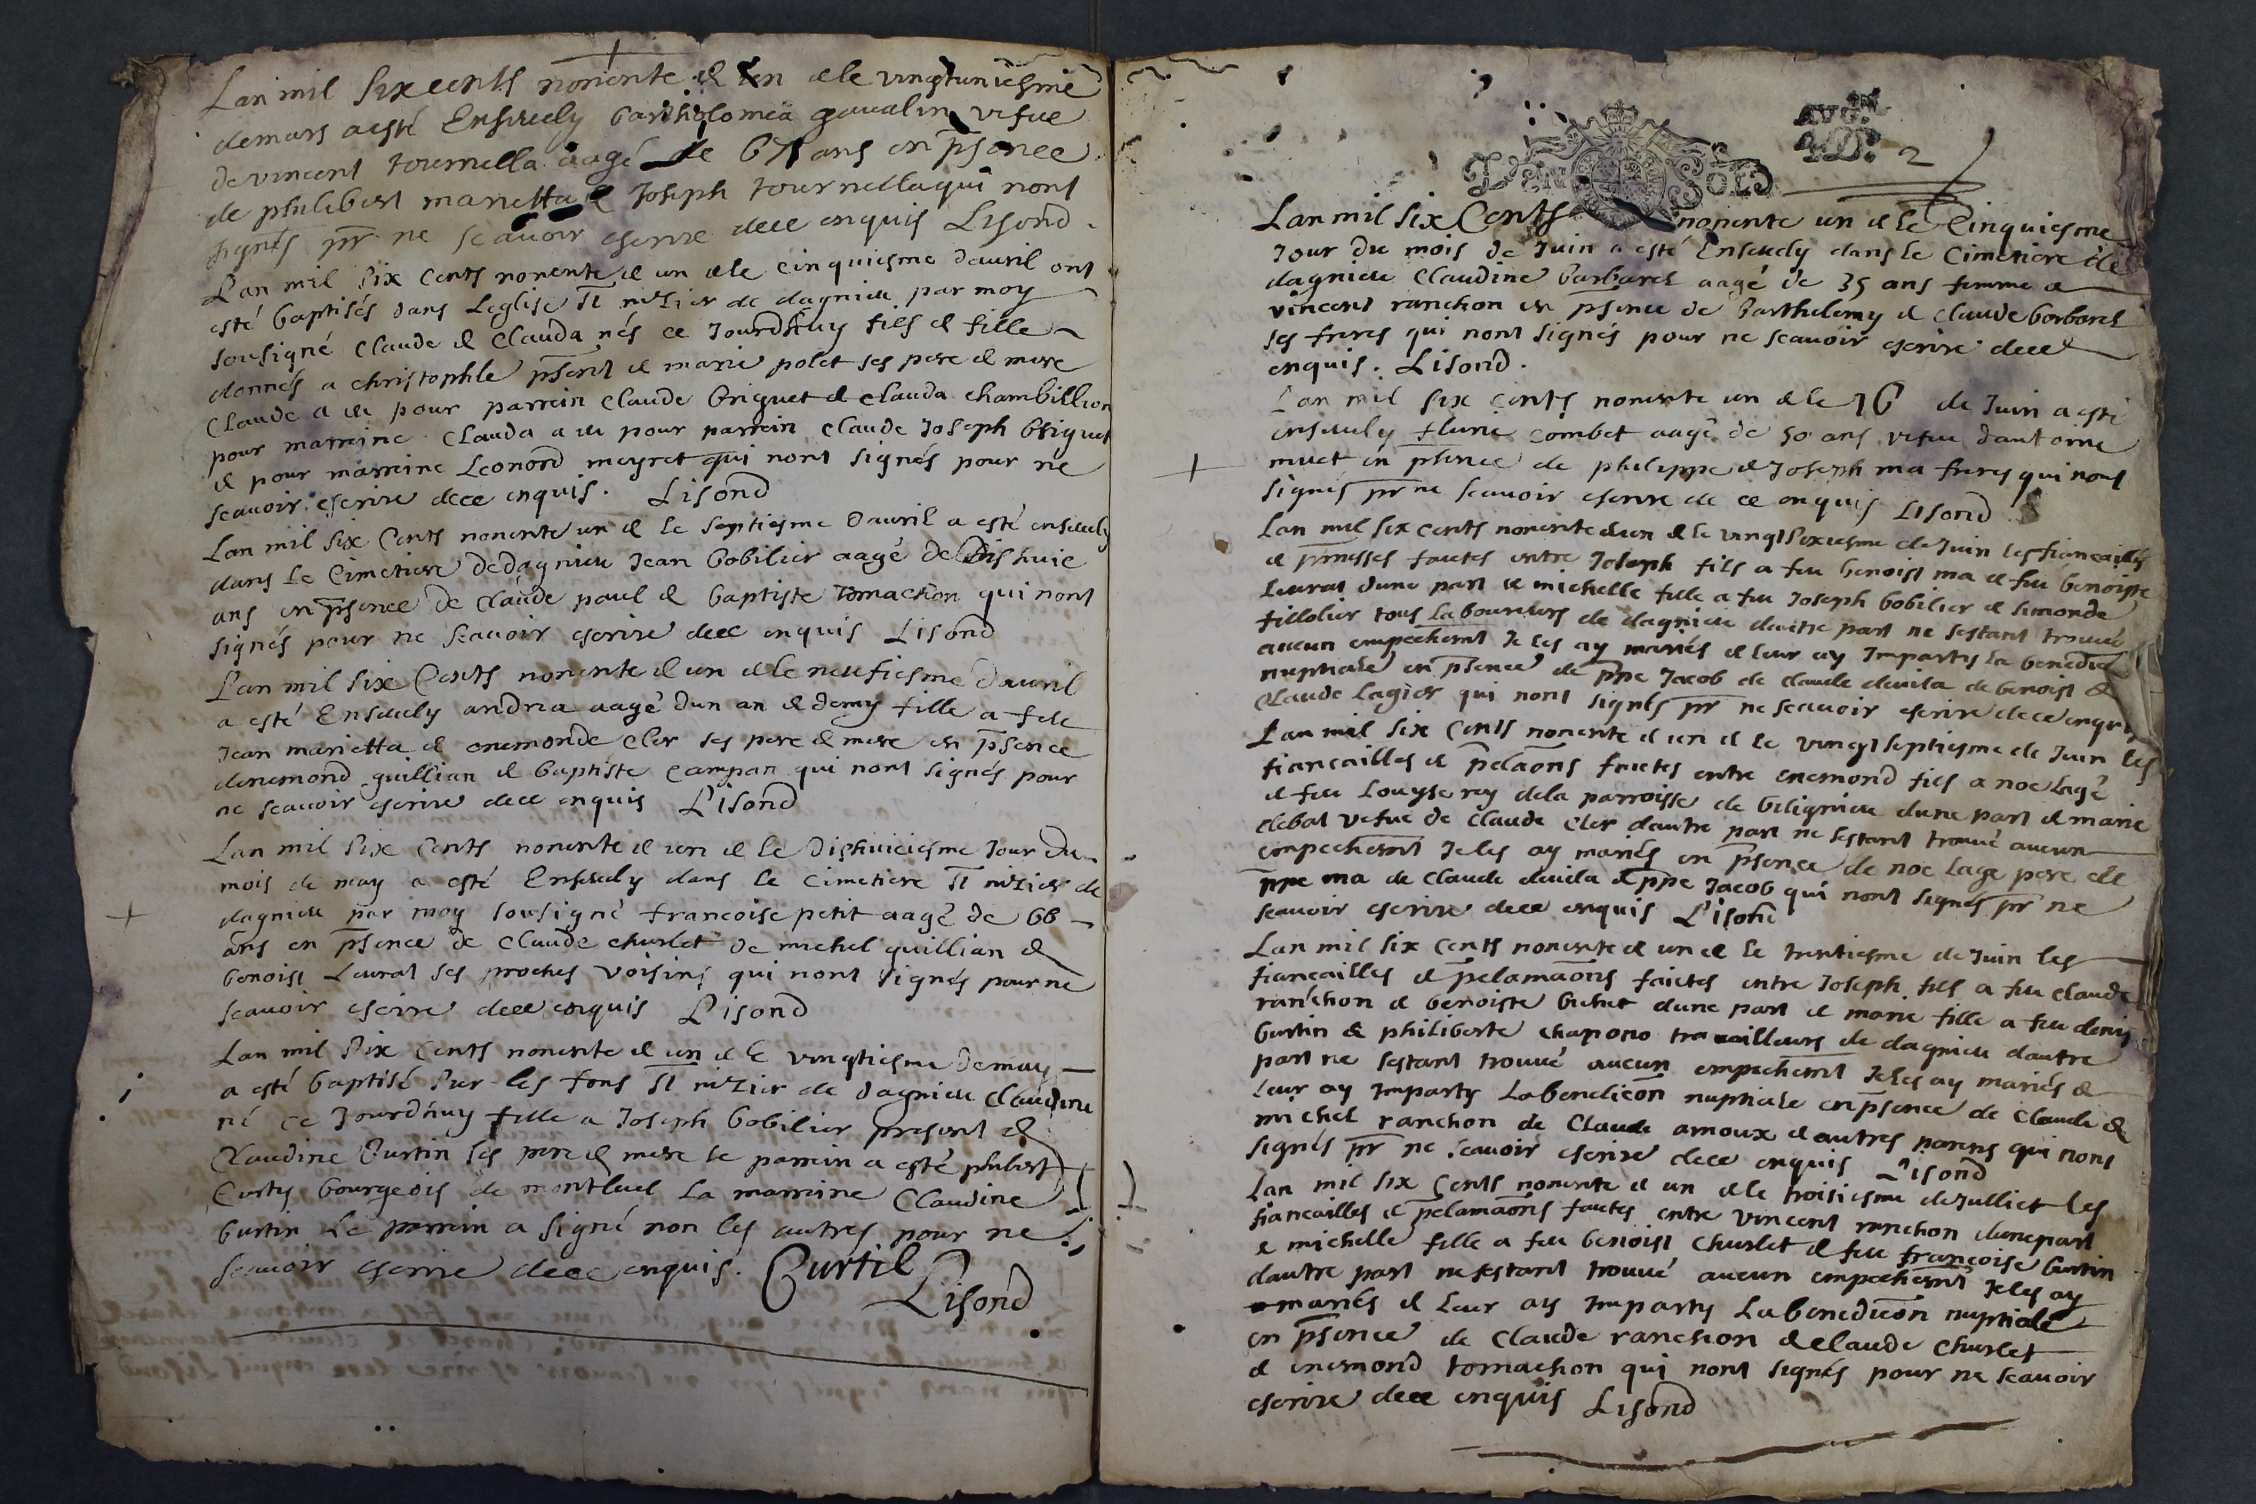 Lan mil six cents nonente & un & le vingtuniesme
de mars a esté Ensevely bartholomea gaudlin vefve
de vincent tournella aagé de 67 ans en psence
de philibert marietta & Joseph tournella qui nont
signés pr ne scavoir escrire dece enquis Lisond.
Lan mil six cents nonente & un & le cinquiesme davril ont
esté baptisés dans Leglise St nizier de dagnieu par moy
sousigné Claude & Clauda nés ce Jourdhuy fils & fille
donnés a christophle psent & marie polet ses pere & mere
Claude a eu pour parrein Claude briguet & Clauda chambillion
pour marreine Clauda a eu pour parrein Claude Joseph briguet
& pour marreine Leonord meyret qui nont signés pour ne
scavoir escrire dece enquis. Lisond
Lan mil six Cents nonente un & le septiesme davril a esté ensevely
dans Le Cimetiere de dagnieu Jean bobilier aagé de Dishuic
ans en psence de Claude paul & baptiste tomachon qui nont
signés pour ne scavoir escrire dece enquis Lisond
Lan mil six Cents nonente & un & le neufiesme davril
a esté Ensevely andrea aagé dun an & demy fille a feu
Jean marietta & enemonde Cler ses pere & mere en psence
denemond guillian & baptiste Campan qui nont signés pour
ne scavoir escrire dece enquis Lisond
Lan mil six Cents nonente & un & le Dishuiciesme Jour du
mois de may a esté Ensevely dans le Cimetiere St nizier de
dagnieu par moy sousigné francoise petit aagé de 66
ans en psence de Claude churlet de michel guillian &
benoist Leurat ses proches voisins qui nont signés pour ne
scavoir escrire dece enquis Lisond
Lan mil six Cents nonente & un & le vingtiesme de may
a esté baptisé sur les fons St nizier de dagnieu Claudine
né ce Jourdhuy fille a Joseph bobilier present &
Claudine burtin ses pere & mere le parrein a esté philibert
Curtis bourgeois de montluel La marreine Claudine
burtin Le parrein a signé non les autres pour ne
scavoir escrire dece enquis. Curtil
Lisond
2
Lan mil six Cents nonente un & le Cinquiesme
Jour du mois de Juin a esté Ensevely dans le Cimetiere de
dagnieu Claudine barbaret aagé de 35 ans femme a
vincent ranchon en psence de barthelemy & Claude barbaret
ses freres qui nont signés pour ne scavoir escrire dece
enquis. Lisond.
Lan mil six cents nonente un & le 16 de Juin a esté
ensevely combet aagé de 50 ans vefve dantoine
muet en psence de philippe & Joseph ma freres qui nont
signés pr ne scavoir escrire de ce enquis Lisond
Lan mil six cents nonente & un & le vingtsixiesme de Juin les fiancailles
& pmesses faites entre Joseph fils a feu benoist ma & feu benoiste
Leurat dune part & michelle fille a feu Joseph bobilier & simonde
fillolier tous Laboureurs de dagnieu dautre part ne sestant trouvé
aucun empechemt Je les ay mariés & leur ay Imparty la benedic
nuptiale en psence de ppe Jacob de claude davila de benoist &
Claude Lagier qui nont signés pr ne scavoir escrire de ce enquis
Lan mil six Cents nonente & un & le vingt septiesme de Juin les
fiancailles & pclaons faictes entre enemond fils a noe Lagé
& feu Louyse rey dela parroisse de beligneu dune part & marie
debat vefve de Claude Cler dautre part ne sestant trouvé aucun
empechemt Je les ay mariés en psence de noe Lage pere de
ppe ma de Claude davila & ppe Jacob qui nont signés pr ne
scavoir escrire dece enquis Lisond
Lan mil six Cents nonente & un & le trentiesme de Juin les
fiancailles & pclamaons faictes entre Joseph fils a feu Claude
ranchon & benoiste buhet dune part & marie fille a feu denis
burtin & philiberte chapono travailleurs de dagnieu dautre
part ne sestant trouvé aucun empechemt Je les ay mariés &
leur ay Imparty La benedicon nuptiale en psence de Claude &
michel ranchon de Claude arnoux & autres parens qui nont
signés pr ne scavoir escrire dece enquis Lisond
Lan mil six Cents nonente & un & le troisiesme de Julliet les
fiancailles & pclamaons faictes entre vincent ranchon dune part
& michelle fille a feu benoist churlet & feu francoise burtin
dautre part ne sestant trouvé aucun empechemt Je les ay
mariés & Leur ay Imparty La benedicon nuptiale
en psence de Claude ranchon & Claude Churlet
& enemond tomachon qui nont signés pour ne scavoir
escrire dece enquis Lisond